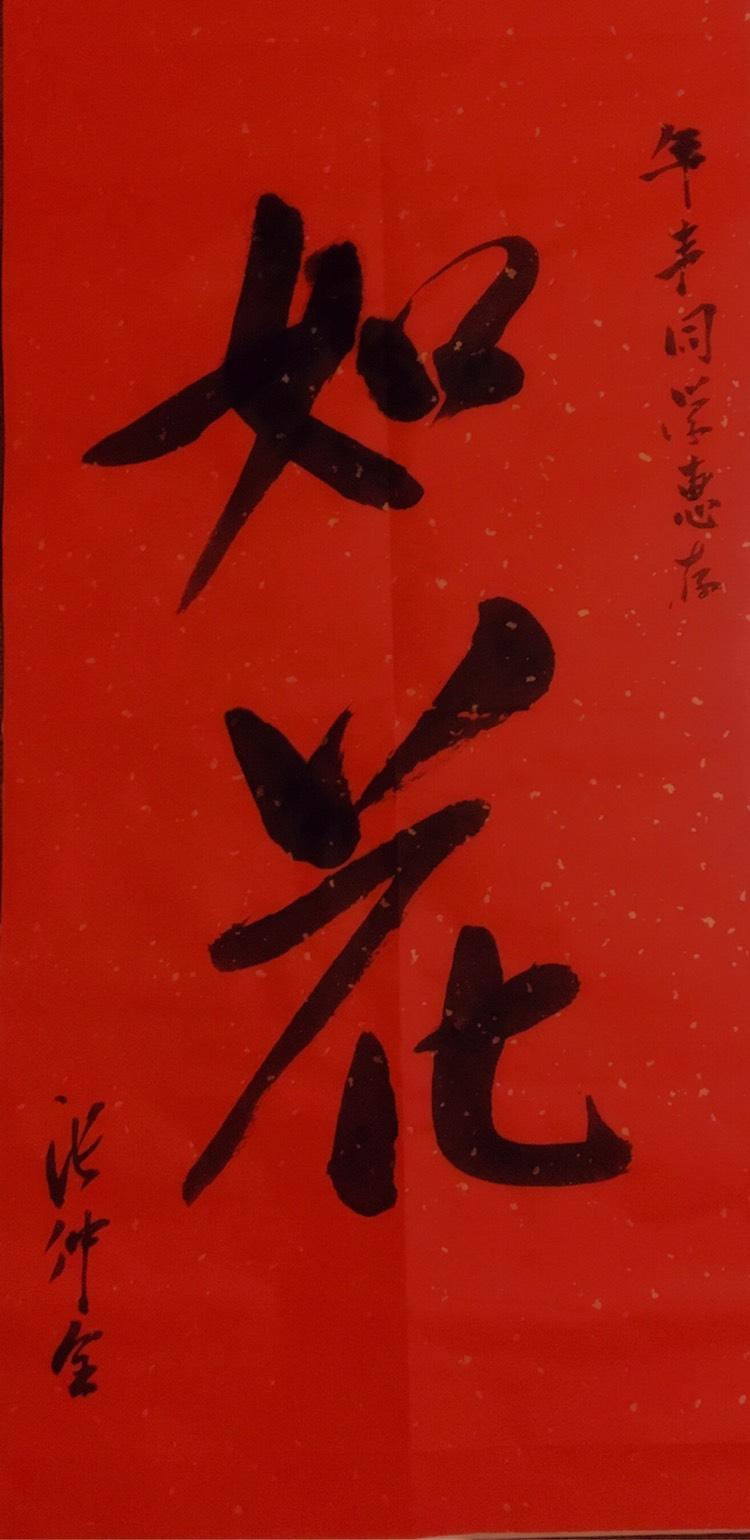 年春同学惠存
如花
张仲全